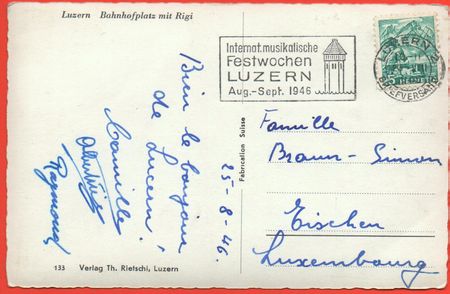 Luzern Bahnhofplatz mit Rigi
Internat. musikalische
Festwochen
LUZERN
Aug.-Sept. 1946
LUZERN
BRIEFVERSAND
HELVETIA
Bien le bonjour
de Lucern!
Camille
Raymond
25-8-46.
Fabrication Suisse
Famille
Braun-Simon
Eischen
Luxembourg
133 Verlag Th. Rietschi, Luzern